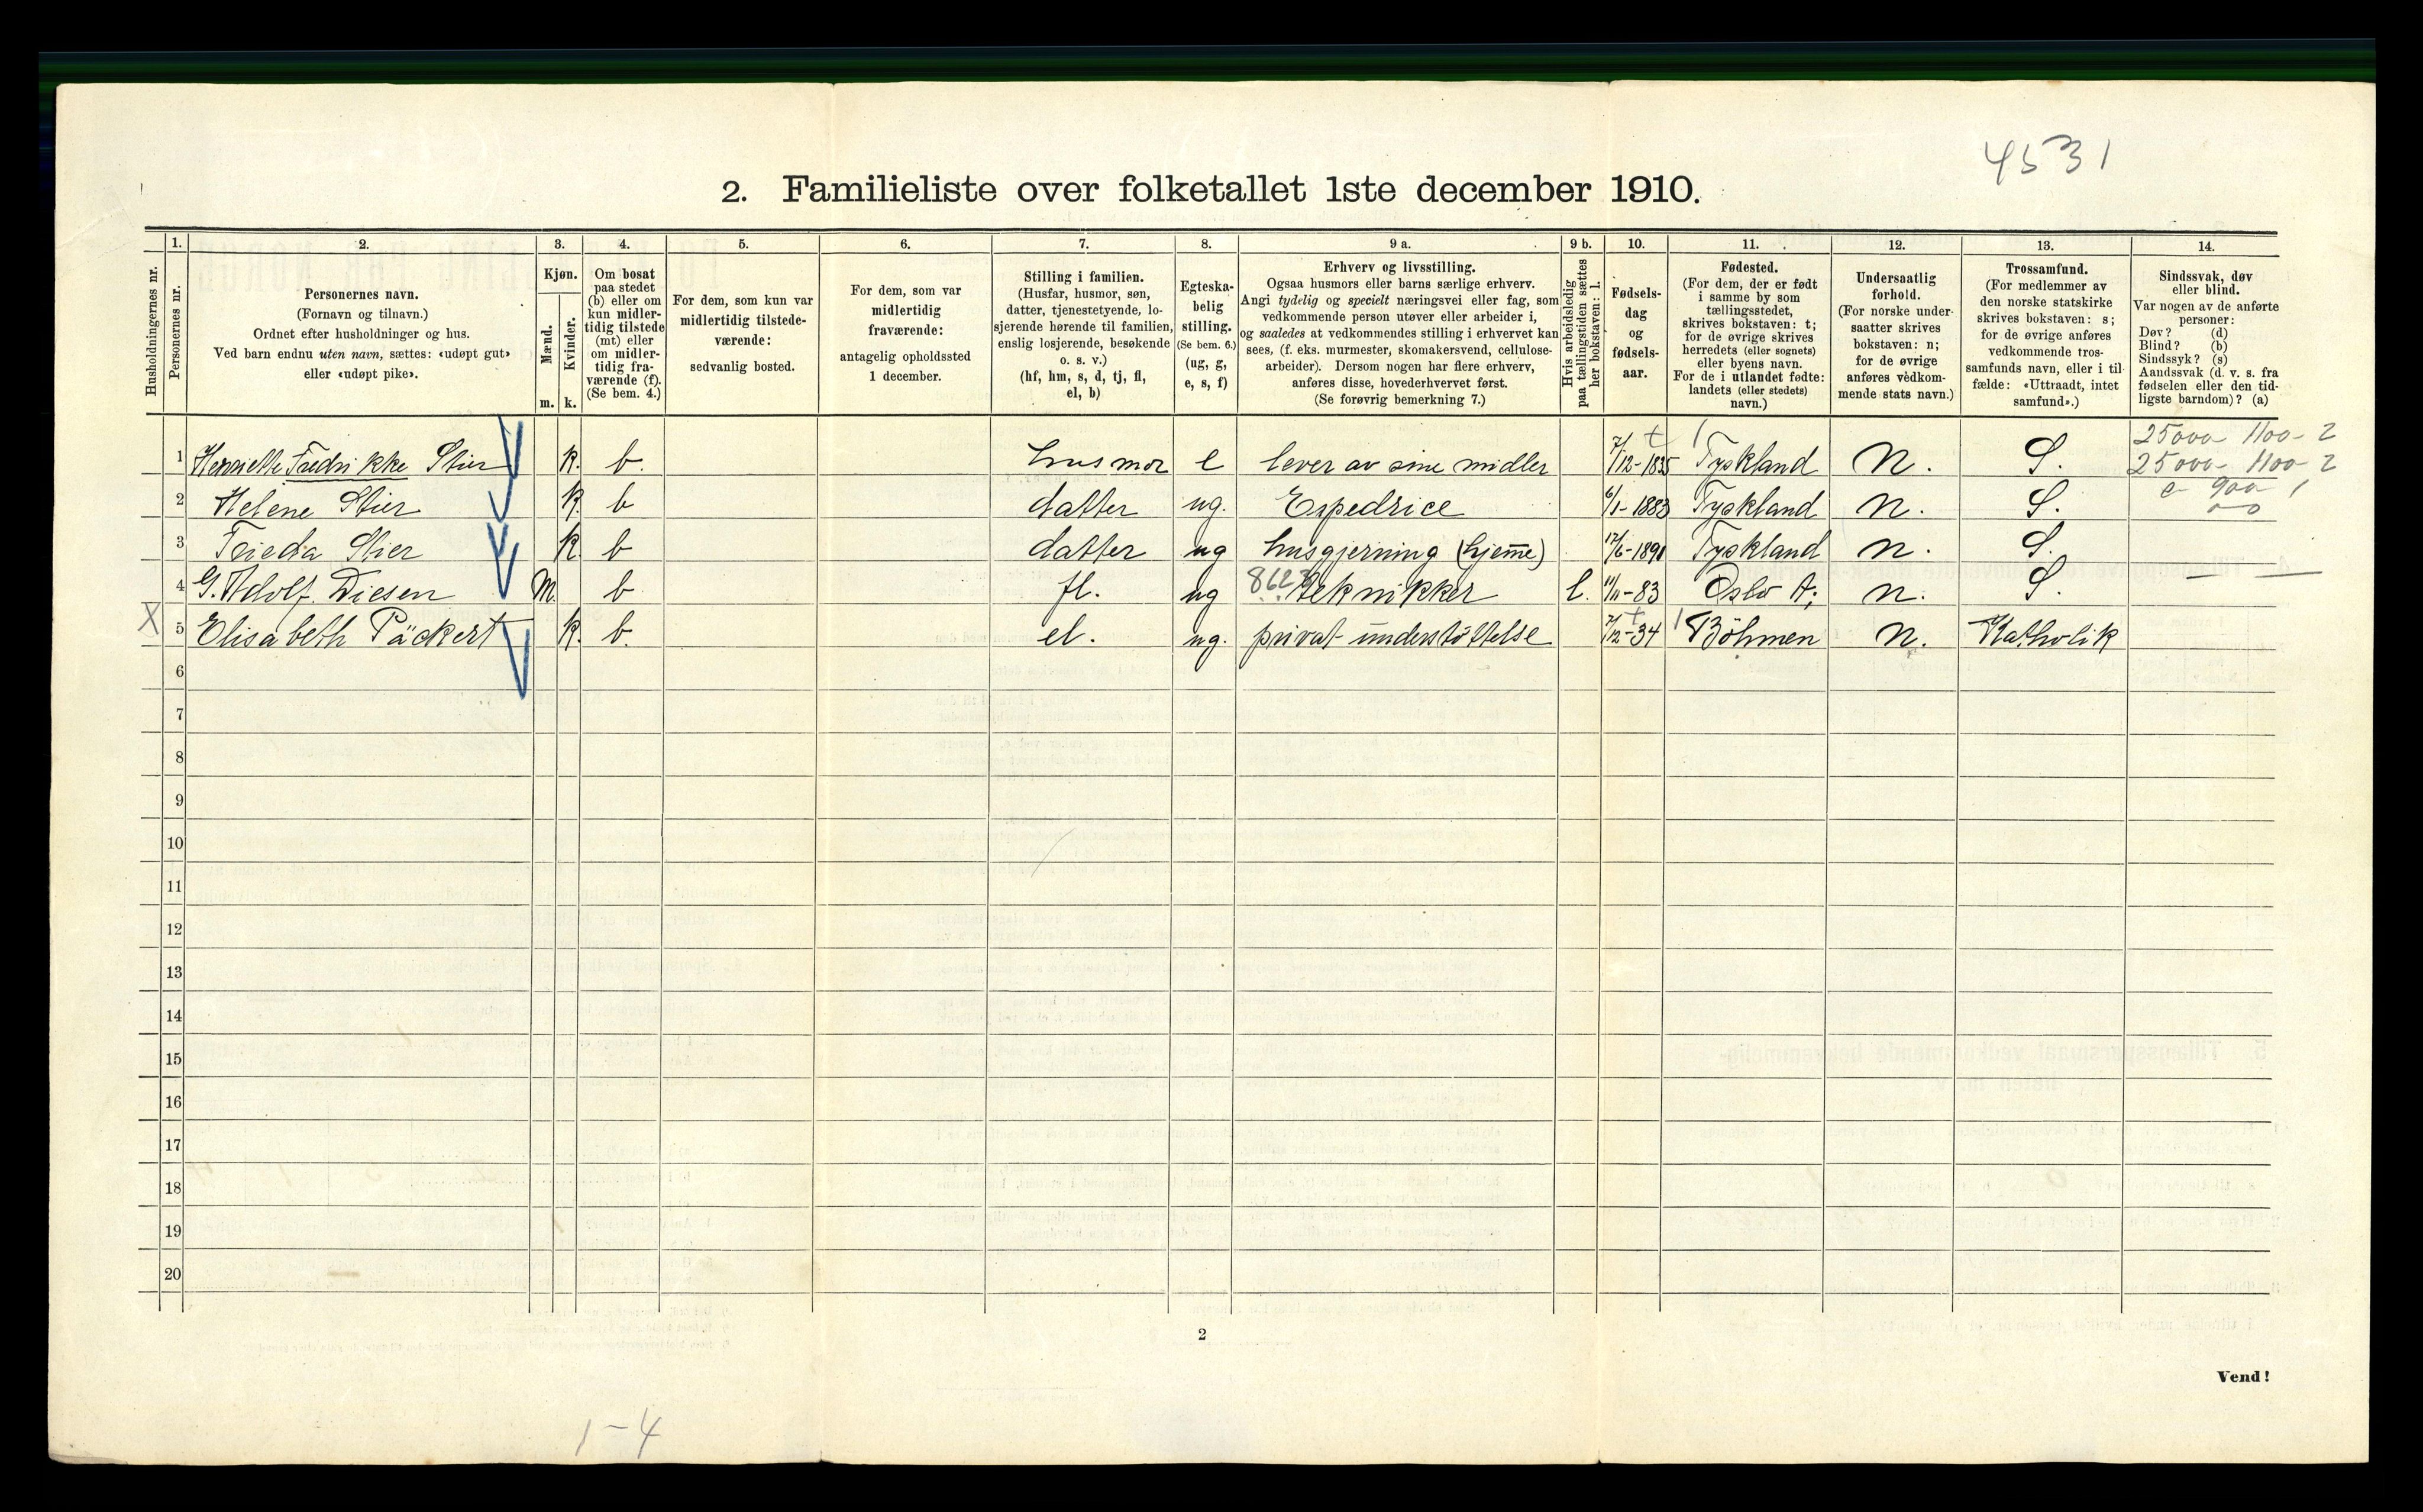 4531
2. Familieliste over folketallet 1ste december 1910.
Husholdningernes nr.
1. Personernes nr.
2. Personernes navn.
(Fornavn og tilnavn.)
Ordnet efter husholdninger og hus.
Ved barn endnu uten navn, sættes: «udøpt gut»
eller «udøpt pike».
3. Kjøn.
Mænd. Kvinder.
m. k.
4. Om bosat
paa stedet
(b) eller om
kun midler-
tidig tilstede
(mt) eller
om midler-
tidig fra-
værende (f).
(Se bem. 4.)
5. For dem, som kun var
midlertidig tilstede-
værende:
sedvanlig bosted.
6. For dem, som var
midlertidig
fraværende:
antagelig opholdssted
1 december.
7. Stilling i familien.
(Husfar, husmor, søn,
datter, tjenestetyende, lo-
sjerende hørende til familien,
enslig losjerende, besøkende
o. s. v.)
(hf, hm, s, d, tj, fl,
el, b)
8. Egteska-
belig
stilling.
(Se bem. 6.)
(ug, g,
e, s, f)
9 a. Erhverv og livsstilling.
Ogsaa husmors eller barns særlige erhverv.
Angi tydelig og specielt næringsvei eller fag, som
vedkommende person utøver eller arbeider i,
og saaledes at vedkommendes stilling i erhvervet kan
sees, (f. eks. murmester, skomakersvend, cellulose-
arbeider). Dersom nogen har flere erhverv,
anføres disse, hovederhvervet først.
(Se forøvrig bemerkning 7.)
9 b. Hvis arbeidsledig
paa tællingstiden sættes
her bokstaven: l.
10. Fødsels-
dag
og
fødsels-
aar.
11. Fødested.
(For dem, der er født
i samme by som
tællingsstedet,
skrives bokstaven: t;
for de øvrige skrives
herredets (eller sognets)
eller byens navn.
For de i utlandet fødte:
landets (eller stedets)
navn.)
12. Undersaatlig
forhold.
(For norske under-
saatter skrives
bokstaven: n;
for de øvrige
anføres vedkom-
mende stats navn.)
13. Trossamfund.
(For medlemmer av
den norske statskirke
skrives bokstaven: s;
for de øvrige anføres
vedkommende tros-
samfunds navn, eller i til-
fælde: «Uttraadt, intet
samfund».)
14. Sindssvak, døv
eller blind.
Var nogen av de anførte
personer:
Døv? (d)
Blind? (b)
Sindssyk? (s)
Aandssvak (d. v. s. fra
fødselen eller den tid-
ligste barndom)? (a)
25000 1100 - 2
1 Henriette Fredrikke Stier k. b. husmor e lever av sine midler 7/12-1835 Tyskland n. S. 25000 - 1100 - 2
e 900 1
2 Helene Stier k. b datter ug. Expedrice 6/1-1883 Tyskland n. S.
3 Frieda Stier k. b datter ug husgjerning (hjeme) 17/6-1891 Tyskland n. S.
4 G. Adolf Diesen m. b fl. ug 8623 Teknikker l. 11/11-83 Oslo A; n. S.
X 5 Elisabeth Päckert k. b. el. ug. privat understöttelse 7/12-34 Böhmen n. Katholik
6
7
8
9
10
11
12
13
14
15
16
17
18
19
20
2
Vend!
1-4